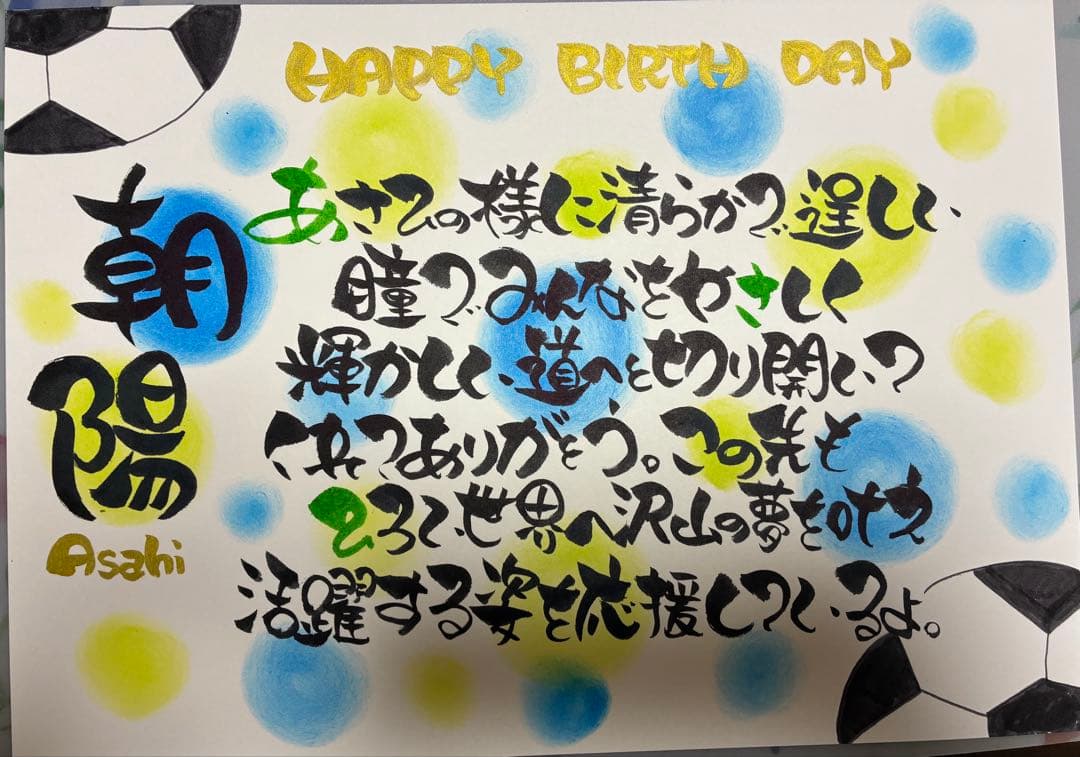 HAPPY BIRTH DAY
朝陽
Asahi
あさひの様に清らかで逞しい
瞳でみんなをやさしく
輝かしく道へと切り開いて
くれてありがとう。この先も
ひろい世界へ沢山の夢を叶え
活躍する姿を応援しているよ。